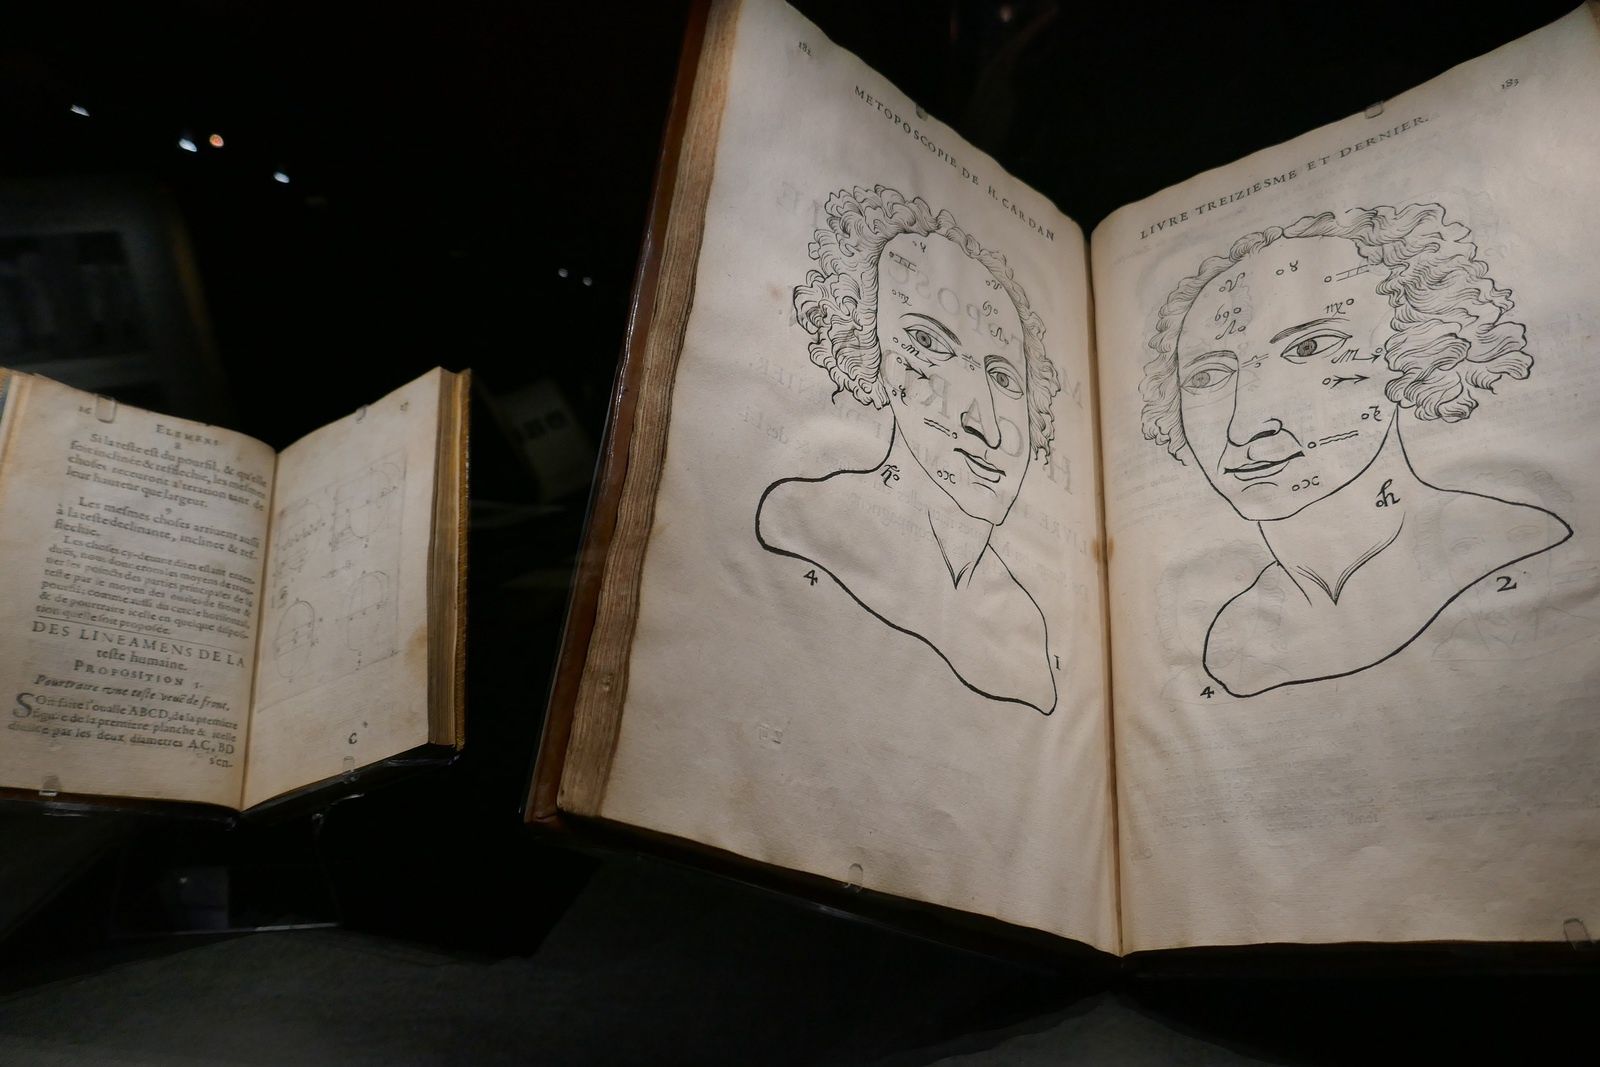 ELEMENS
Si la teste est du pourfil, & qu'elle
soit inclinée & reflechie, les mesmes
choses recevront alteration tant de
leur hauteur que largeur.
9
Les mesmes choses arrivent aussi
à la teste declinante, inclinée & ref-
flechie.
Les choses cy-devant dites estant enten-
duës, nous donnerons les moyens de trou-
ver les poincts des parties principales de la
teste par le moyen des ovales de front &
pourfil; comme aussi du cercle horisontal,
& de pourtraire icelle en quelque disposi-
tion qu'elle soit proposée.
DES LINEAMENS DE LA
teste humaine.
PROPOSITION 1.
Pourtraire une teste veuë de front.
SOit faite l'ovalle ABCD, de la premiere
figure de la premiere planche & icelle
divisée par les deux diametres AC, BD
s'en-
C
182
METOPOSCOPIE DE H. CARDAN
4
1
183
LIVRE TREIZIESME ET DERNIER.
2
4